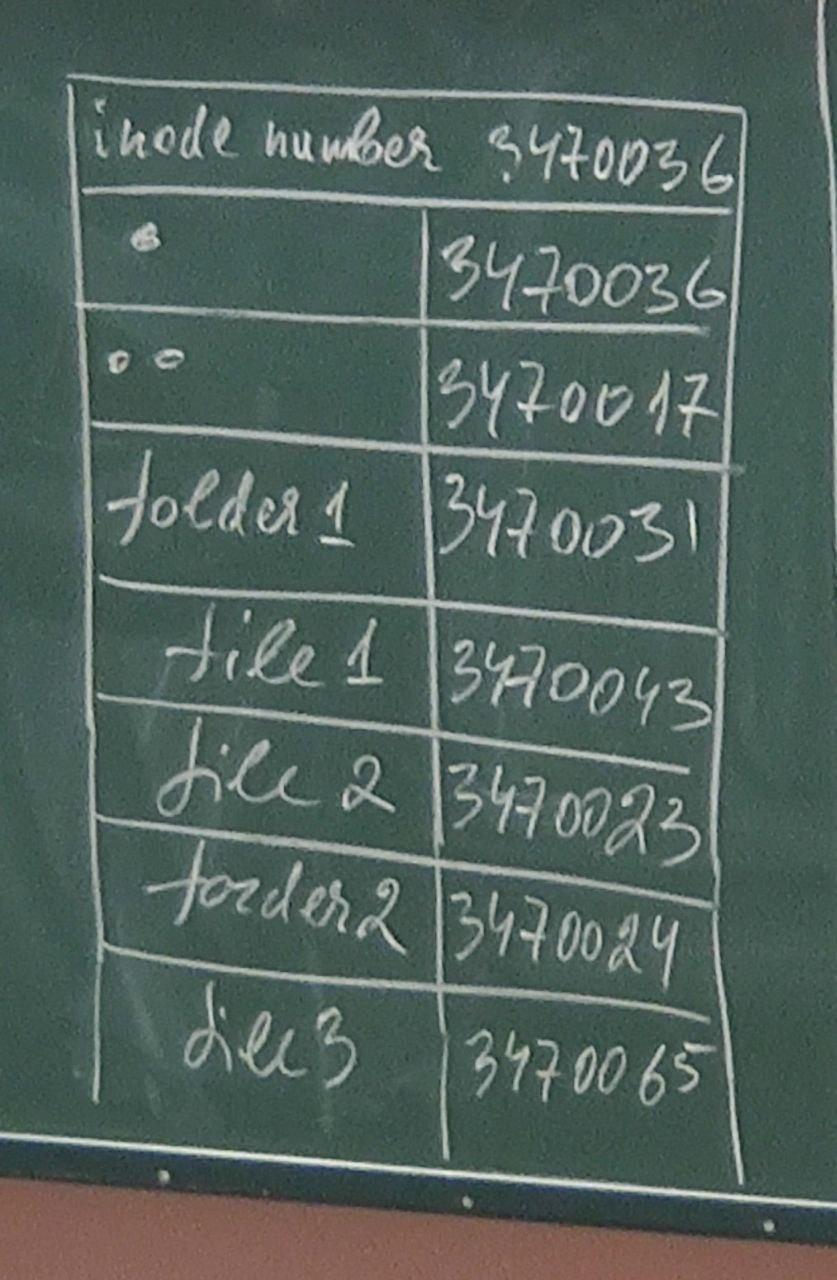 inode number 3470036
. 3470036
.. 3470017
folder 1 3470031
file 1 3470043
file 2 3470023
folder 2 3470024
file 3 3470065